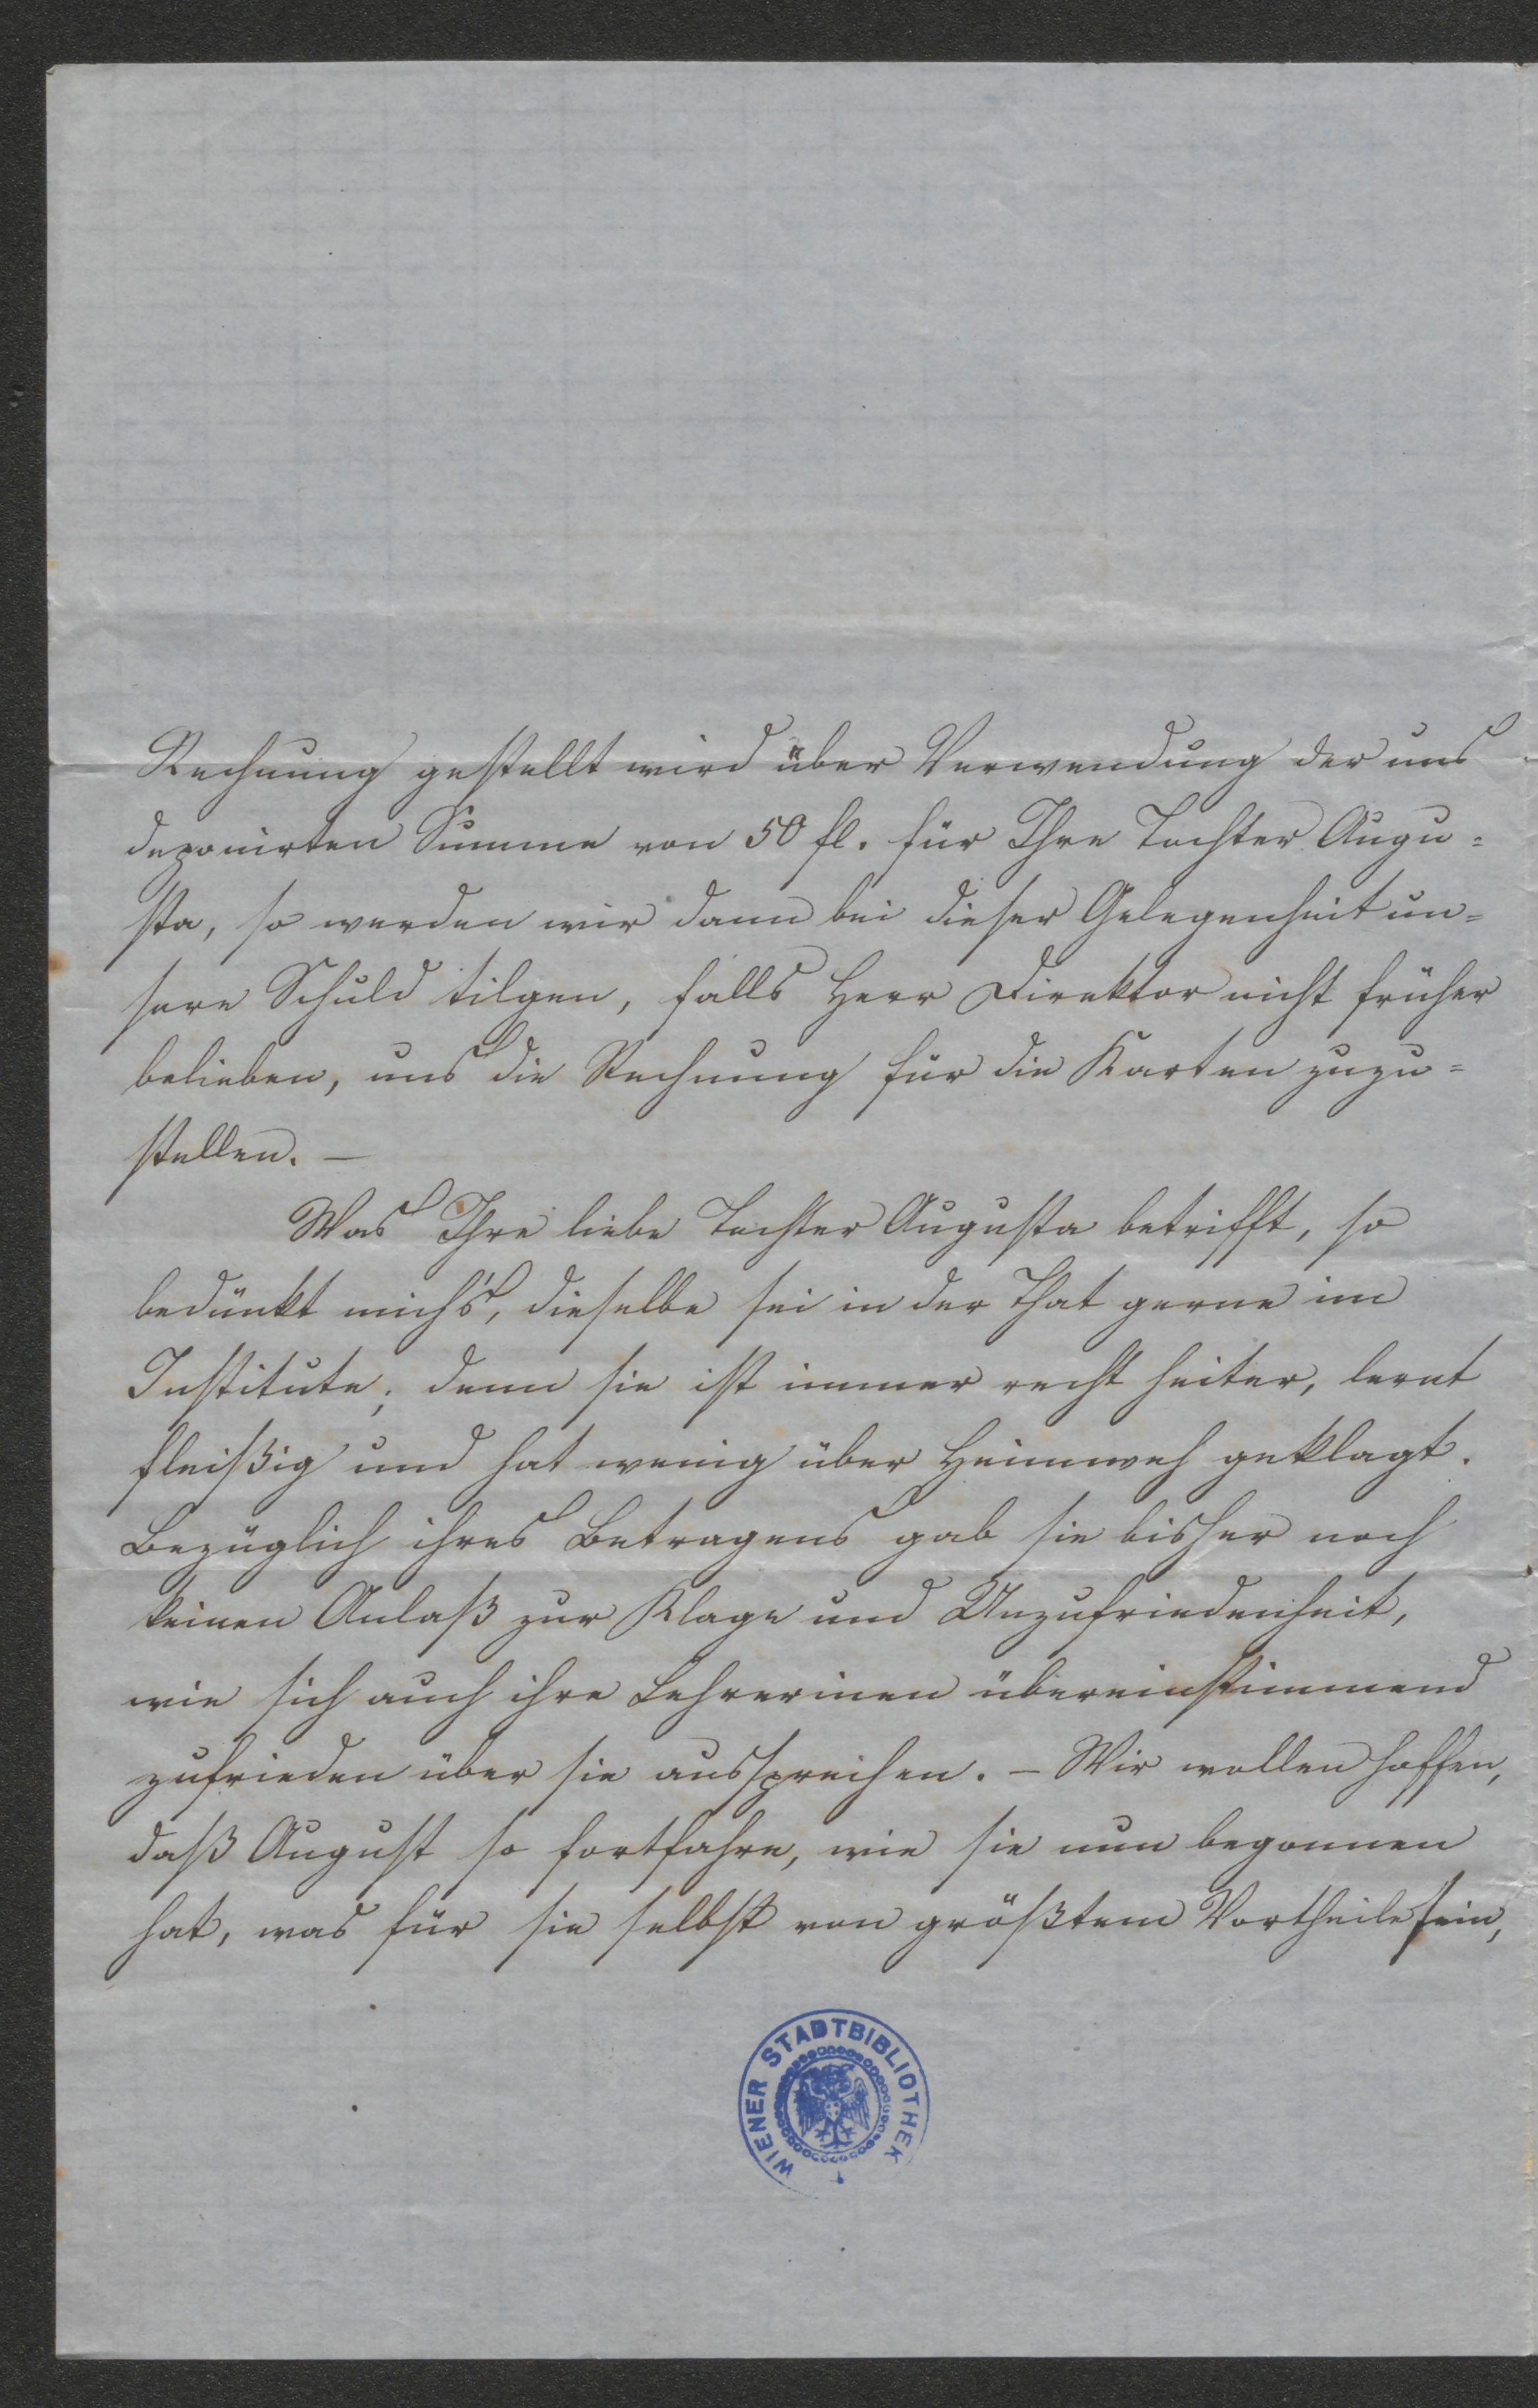 Rechnung gestellt wird über Verwendung der uns
deponirten Summe von 50 fl. für Ihre Tochter Augu=
sta, so werden wir dann bei dieser Gelegenheit un=
sere Schuld tilgen, falls Herr Direktor nicht früher
belieben, uns die Rechnung für die Karten zuzu=
stellen. —
Was Ihre liebe Tochter Augusta betrifft, so
bedünkt mich's, dieselbe sei in der That gerne im
Institute; denn sie ist immer recht heiter, lernt
fleißig und hat wenig über Heimweh geklagt.
Bezüglich ihres Betragens gab sie bisher noch
keinen Anlaß zur Klage und Unzufriedenheit,
wie sich auch ihre Lehrerinen übereinstimmend
zufrieden über sie aussprechen. – Wir wollen hoffen,
daß August so fortfahre, wie sie nun begonnen
hat, was für sie selbst von größtem Vortheile sein,
WIENER STADTBIBLIOTHEK